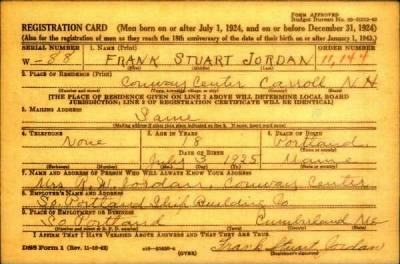 FORM APPROVED
REGISTRATION CARD (Men born on or after July 1, 1924, and on or before December 31, 1924)
(Also for the registration of men as they reach the 18th anniversary of the date of their birth on or after January 1, 1943.)
SERIAL NUMBER 1. NAME (Print) ORDER NUMBER
W-88 FRANK STUART JORDAN
2. PLACE OF RESIDENCE (Print)
Conway Center Carroll N.H.
(Town, township, village, or city) (County) (State)
[THE PLACE OF RESIDENCE GIVEN ON LINE 2 ABOVE WILL DETERMINE LOCAL BOARD
JURISDICTION; LINE 2 OF REGISTRATION CERTIFICATE WILL BE IDENTICAL]
3. MAILING ADDRESS
Same
4. TELEPHONE 5. AGE IN YEARS 6. PLACE OF BIRTH
None 18 Portland
DATE OF BIRTH
July 3 1925 Maine
7. NAME AND ADDRESS OF PERSON WHO WILL ALWAYS KNOW YOUR ADDRESS
Mrs. Jordan, Conway Center
8. EMPLOYER'S NAME AND ADDRESS
So. Portland Ship Building Co
9. PLACE OF EMPLOYMENT OR BUSINESS
So Portland Cumberland Me
I AFFIRM THAT I HAVE VERIFIED ABOVE ANSWERS AND THAT THEY ARE TRUE.
DSS Form 1 (Rev. 11-16-42) (OVER) Frank Stuart Jordan
(Registrant's signature)